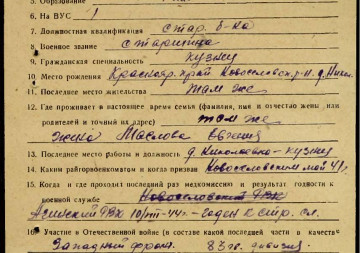 5. Образование
6. На ВУС 1
7. Должностная квалификация стар. б-ка
8. Военное звание старшина
9. Гражданская специальность кузнец
10. Место рождения Краснояр. край Новоселовск. р-н д. Никол.
11. Последнее место жительства там же
12. Где проживает в настоящее время семья (фамилия, имя и отчество жены или
родителей и точный их адрес) там же
жена Маслова Евгения
13. Последнее место работы и должность д Николаевка - кузнец
14. Каким райгорвоенкоматом и когда призван Новоселовским май 41 г.
15. Когда и где проходил последний раз медкомиссию и результат годности к
военной службе Новоселовский РВК
РВК 10/VIII-44г. - годен к стр. сл.
16. Участие в Отечественной войне (в составе какой последней части в качестве
Западный фронт. 83 гв. дивизия